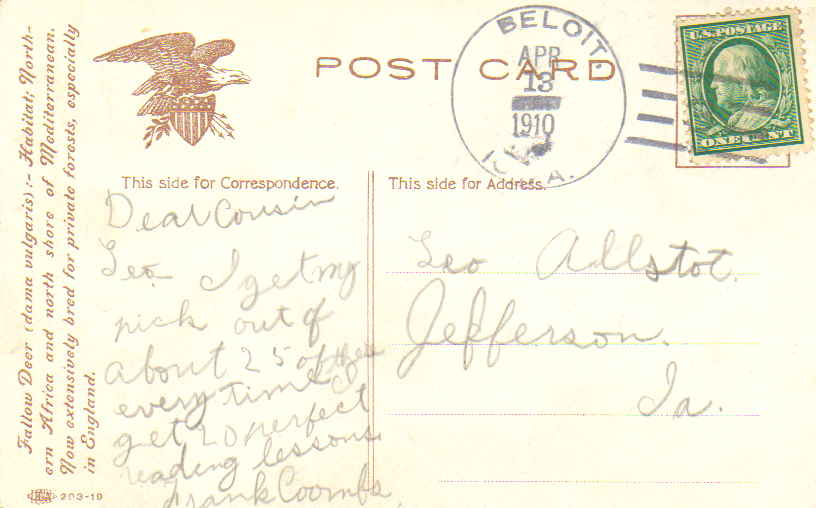 Fallow Deer (dama vulgaris) :- Habitat; North-
ern Africa and north shore of Mediterranean.
Now extensively bred for private forests, especially
in England.
203-19
POST CARD
BELOIT.
APR
13
1910
IOWA.
U.S. POSTAGE
ONE CENT
This side for Correspondence.
This side for Address.
Dear Cousin
Leo. I get my
pick out of
about 25 of these
every time I
get 20 perfect
reading lessons.
Frank Coombs.
Leo Allstot.
Jefferson.
Ia.